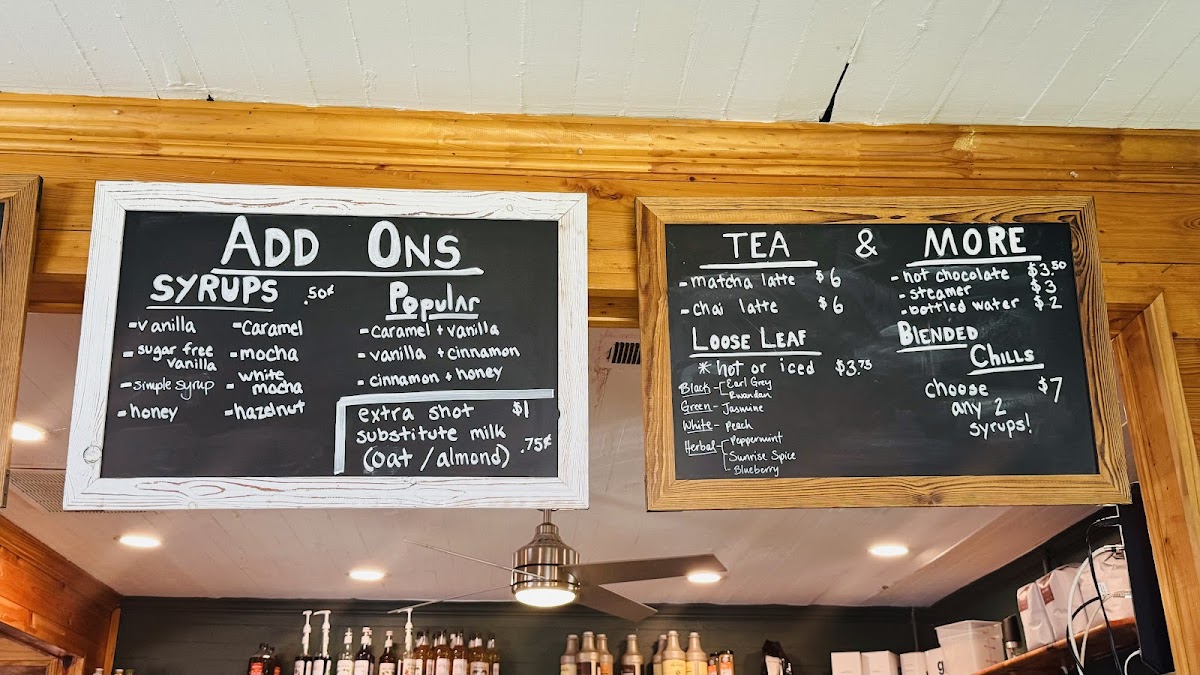 ADD ONS
SYRUPS .50¢
-vanilla
-sugar free
vanilla
-simple syrup
-honey
-Caramel
-mocha
-white
mocha
-hazelnut
Popular
-Caramel + vanilla
-vanilla + cinnamon
-cinnamon + honey
extra shot $1
substitute milk
(oat / almond) .75¢
TEA & MORE
-matcha latte $6
-chai latte $6
LOOSE LEAF
*hot or iced $3.75
Black - Earl Grey
Rwandan
Green - Jasmine
White - Peach
Herbal - Peppermint
Sunrise Spice
Blueberry
-hot chocolate $3.50
-steamer $3
-bottled water $2
BLENDED
CHILLS
choose $7
any 2
syrups!
g